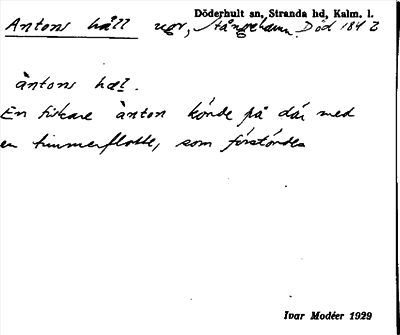 Döderhult sn, Stranda hd, Kalm. l.
Antons häll ugr, Död 184 2
àntons hæl.
En fiskare ànton körde på där med
en timmerflotte, som förstördes
Ivar Modéer 1929